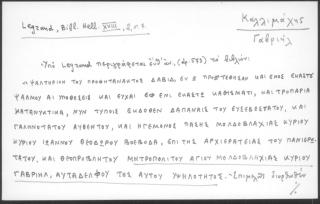 Legrand, Bibl. Hell. XVIII, 2, σ. 2.
Καλλιμάχης
Γαβριήλ
Ὑπὸ Legrand περιγράφεται (ἀρ. 573) τὸ βιβλίον:
"ΨΑΛΤΗΡΙΟΝ ΤΟΥ ΠΡΟΦΗΤΑΝΑΚΤΟΣ ΔΑΒΙΔ, ΕΝ ᾯ ΠΡΟΣΕΤΕΘΗΣΑΝ ΚΑΙ ΕΝΟΣ ΕΚΑΣΤΟΥ
ΨΑΛΜΟΥ ΑΙ ΥΠΟΘΕΣΕΙΣ ΚΑΙ ΕΥΧΑΙ ΕΦ' ΕΝΙ ΕΚΑΣΤΩ ΚΑΘΙΣΜΑΤΙ, ΚΑΙ ΤΡΟΠΑΡΙΑ
ΚΑΤΑΝΥΚΤΙΚΑ, ΝΥΝ ΤΥΠΟΙΣ ΕΚΔΟΘΕΝ ΔΑΠΑΝΑΙΣ ΤΟΥ ΕΥΣΕΒΕΣΤΑΤΟΥ, ΚΑΙ
ΓΑΛΗΝΟΤΑΤΟΥ ΑΥΘΕΝΤΟΥ, ΚΑΙ ΗΓΕΜΟΝΟΣ ΠΑΣΗΣ ΜΟΛΔΟΒΛΑΧΙΑΣ ΚΥΡΙΟΥ
ΚΥΡΙΟΥ ΙΩΑΝΝΟΥ ΘΕΟΔΩΡΟΥ ΒΟΕΒΟΔΑ, ΕΠΙ ΤΗΣ ΑΡΧΙΕΡΑΤΕΙΑΣ ΤΟΥ ΠΑΝΙΕΡΩ-
ΤΑΤΟΥ, ΚΑΙ ΘΕΟΠΡΟΒΛΗΤΟΥ ΜΗΤΡΟΠΟΛΙΤΟΥ ΑΓΙΟΥ ΜΟΛΔΟΒΛΑΧΙΑΣ ΚΥΡΙΟΥ
ΓΑΒΡΙΗΛ, ΑΥΤΑΔΕΛΦΟΥ ΤΗΣ ΑΥΤΟΥ ΥΨΗΛΟΤΗΤΟΣ.